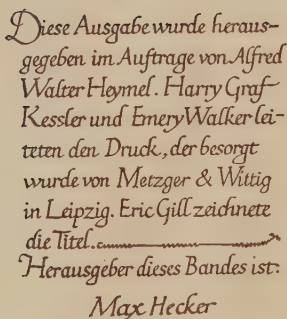 Diese Ausgabe wurde heraus-
gegeben im Auftrage von Alfred
Walter Heymel. Harry Graf
Kessler und Emery Walker lei-
teten den Druck, der besorgt
wurde von Metzger & Wittig
in Leipzig. Eric Gill zeichnete
die Titel.
Herausgeber dieses Bandes ist:
Max Hecker